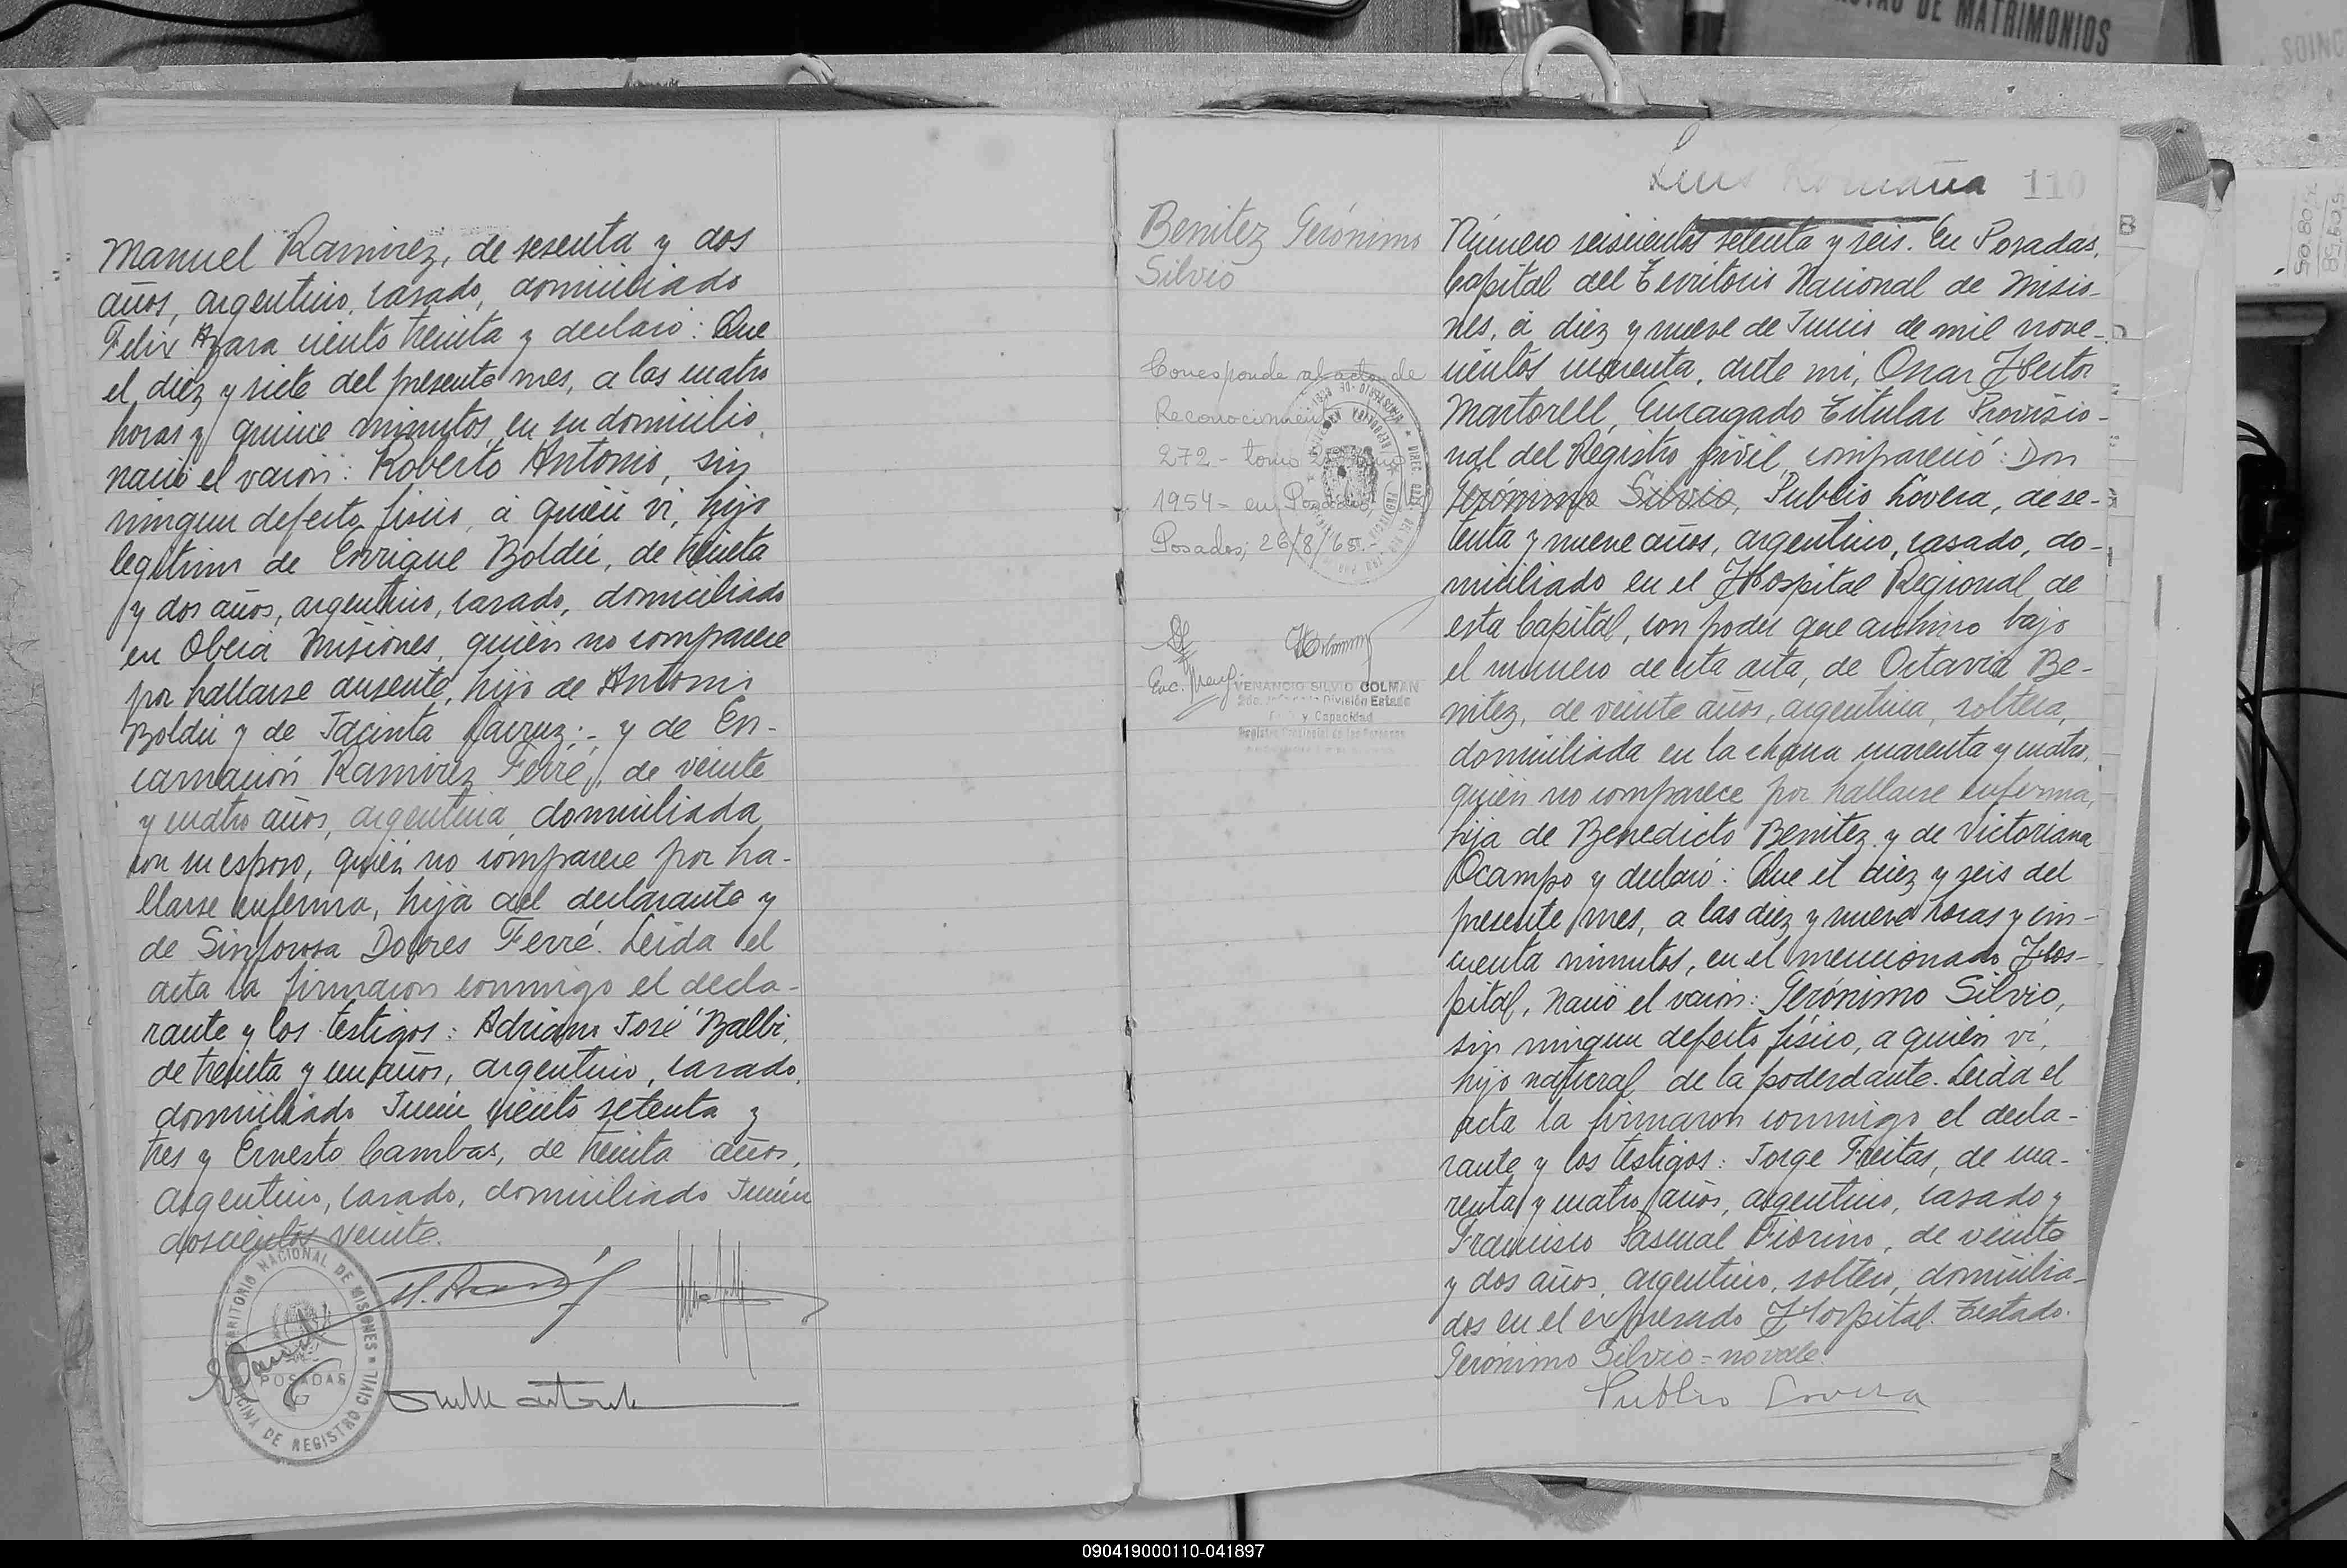 DE MATRIMONIOS
Manuel Ramirez, de sesenta y dos
años, argentino, casado, domiciliado
Felix Azara ciento treinta y declaró: Que
el diez y siete del presente mes, a las cuatro
horas y quince minutos, en su domicilio,
nació el varón: Roberto Antonio, sin
ningun defecto fisico, á quién vi, hijo
legitimo de Enrique Boldú, de treinta
y dos años, argentino, casado, domiciliado
en Oberá Misiones, quién no comparece
por hallarse ausente, hijo de Antonio
Boldú y de Jacinta ; - y de En-
carnación Ramirez Ferré, de veinte
y cuatro años, argentina, domiciliada
con su esposo, quién no comparece por ha-
llarse enferma, hija del declarante y
de Sinforosa Dolores Ferré. Leida el
acta la firmaron conmigo el decla-
rante y los testigos: Adriano José Balbi,
de treinta y un años, argentino, casado,
domiciliado Junin ciento setenta y
tres y Ernesto Cambas, de treinta años,
argentino, casado, domiciliado Junin
doscientos veinte.
TERRITORIO NACIONAL DE MISIONES
POSADAS
OFICINA DE REGISTRO CIVIL
Luis Romaña 110
Benitez Gerónimo
Silvio
Corresponde al acta de
Reconocimiento
272 - tomo
1954 - en Posadas,
Posadas, 26/8/65.-
Enc.
VENANCIO SILVIO COLMAN
División Estado
y Capacidad
Registro Provincial de las Personas
Número seiscientos setenta y seis. En Posadas,
Capital del Territorio Nacional de Misio-
nes, á diez y nueve de Junio de mil nove-
cientos cuarenta, ante mi, Oscar Hector
Martorell, Encargado Titular Proviso-
nal del Registro Civil, compareció: Don
Gerónimo Silvio, Publio Lovera, de se-
tenta y nueve años, argentino, casado, do-
miciliado en el Hospital Regional de
esta Capital, con poder que archivo bajo
el numero de esta acta, de Octavia Be-
nitez, de veinte años, argentina, soltera,
domiciliada en la chacra cuarenta y cuatro,
quién no comparece por hallarse enferma,
hija de Benedicto Benitez y de Victoriana
Ocampo y declaró: Que el diez y seis del
presente mes, a las diez y nueve horas y cin-
cuenta minutos, en el mencionado Hos-
pital, nació el varón: Gerónimo Silvio,
sin ningun defecto físico, a quién vi,
hijo natural de la poderdante. Leida el
acta la firmaron conmigo el decla-
rante y los testigos: Jorge Freitas, de cua-
renta y cuatro años, argentino, casado y
Francisco Pascual Fiorino, de veinte
y dos años, argentino, soltero, domicilia-
dos en el expresado Hospital. Testado:
Gerónimo Silvio = no vale.
Publio Lovera
090419000110-041897